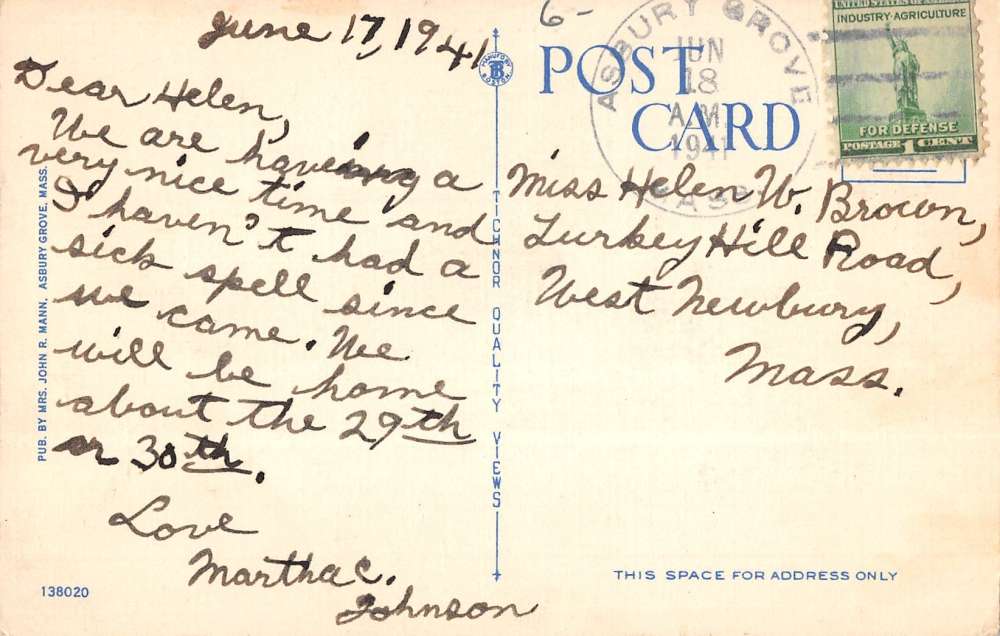 June 17, 1941
Dear Helen,
We are haveing a
very nice time and
I haven't had a
sick spell since
we came. We
will be home
about the 29th
or 30th.
Love
Martha C.
Johnson
PUB. BY MRS. JOHN R. MANN, ASBURY GROVE, MASS.
138020
MANUF'D BY
TB
BOSTON
TICHNOR QUALITY VIEWS
6-
POST
CARD
ASBURY GROVE
JUN
18
A.M.
1941
MASS.
UNITED STATES OF AMERICA
INDUSTRY-AGRICULTURE
FOR DEFENSE
POSTAGE 1 CENT
Miss Helen W. Brown,
Turkey Hill Road,
West Newbury,
Mass.
THIS SPACE FOR ADDRESS ONLY